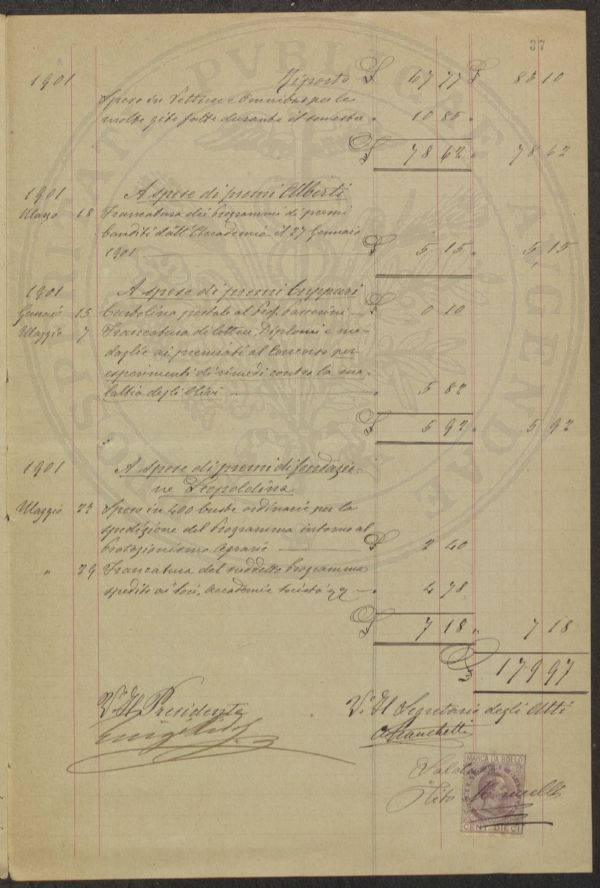 37
1901 Riporto £ 67 77 £ 80 10
Spese in Vetture e Omnibus per le
molte gite fatte durante il semestre " 10 85 "
£ 78 62 " 78 62
1901 A spese di premi Alberti
Marzo 18 Francatura dei Programmi di premi
banditi dall'Accademia il 27 Gennaio
1901 — £ 5 15 " 5 15
1901 A spese di premi Cuppari
Gennaio 15 Cartolina postale al Prof. Passerini — £ 0 10
Maggio 7 Francatura di lettere, Diplomi e me-
daglie ai premiati al Concorso per
esperimenti di rimedi contro la ma-
lattia degli Ulivi — " 5 82
£ 5 92 " 5 92
1901 A spese di premi di fondazio-
ne Leopoldina
Maggio 23 Spese in 400 buste ordinarie per la
spedizione del Programma intorno al
Protezionismo Agrario — £ 2 40
" 29 Francatura del suddetto Programma
spedito ai Soci, Accademie Società — " 4 78
£ 7 18 " 7 18
£ 179 97
V° Il Presidente
V° Il Segretario degli Atti
MARCA DA BOLLO
CENT. DIECI
PUBLICAE
PROSPERITATI
AUGENDAE